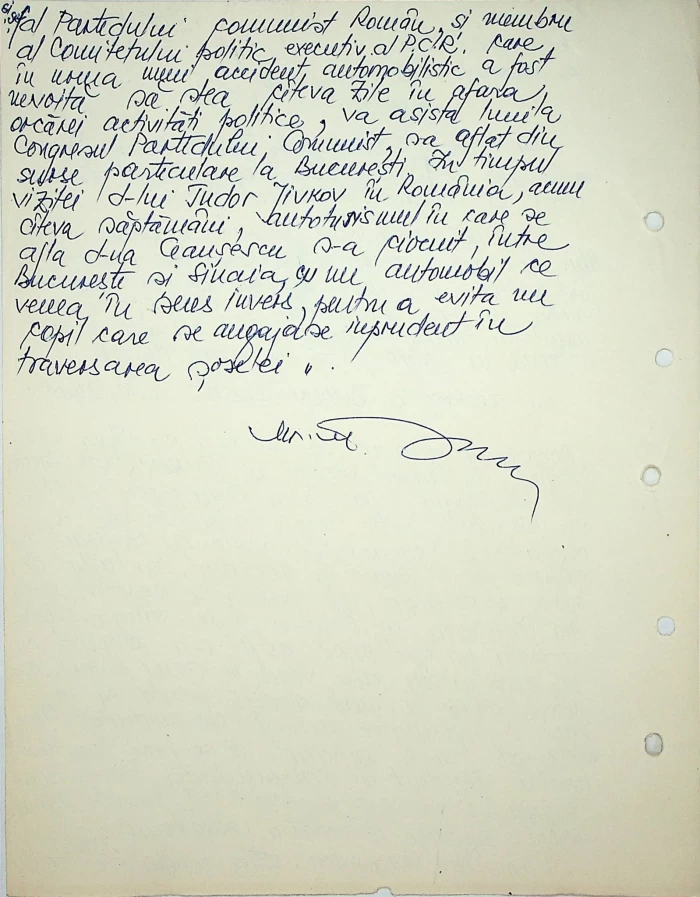 al Partidului comunist Român, și membru
al Comitetului politic executiv al P.C.R. care
în urma unui accident automobilistic a fost
nevoită să stea cîteva zile în afara
orcărei activități politice, va asista luni la
Congresul Partidului Comunist, s-a aflat din
surse particulare la București. În timpul
vizitei d-lui Tudor Jivkov în România, acum
cîteva săptămîni, autoturismul în care se
afla d-na Ceaușescu s-a ciocnit, între
București și Sinaia, cu un automobil ce
venea în sens invers, pentru a evita un
copil care se angajase inprudent în
traversarea șoselei ".